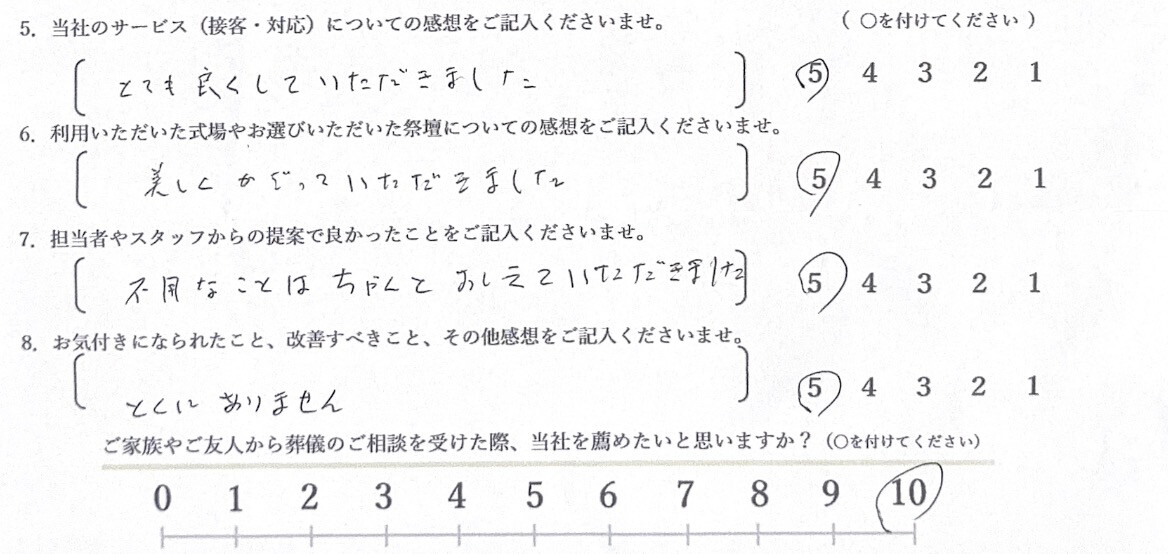 5. 当社のサービス（接客・対応）についての感想をご記入くださいませ。 （ ○を付けてください ）
とても良くしていただきました 5 4 3 2 1
6. 利用いただいた式場やお選びいただいた祭壇についての感想をご記入くださいませ。
美しくかざっていただきました 5 4 3 2 1
7. 担当者やスタッフからの提案で良かったことをご記入くださいませ。
不用なことはちゃんとおしえていただきました 5 4 3 2 1
8. お気付きになられたこと、改善すべきこと、その他感想をご記入くださいませ。
とくにありません 5 4 3 2 1
ご家族やご友人から葬儀のご相談を受けた際、当社を薦めたいと思いますか？（○を付けてください）
0 1 2 3 4 5 6 7 8 9 10